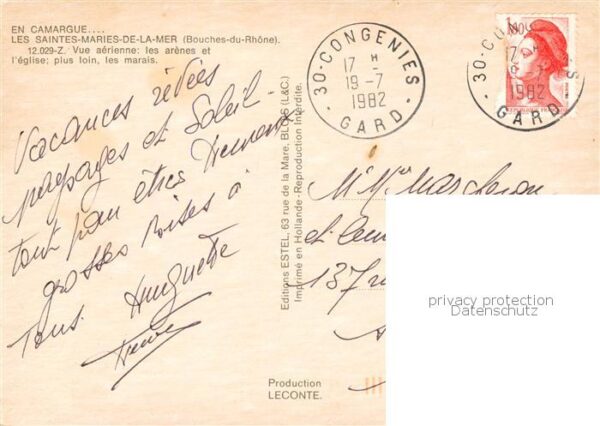 EN CAMARGUE....
LES SAINTES-MARIES-DE-LA-MER (Bouches-du-Rhône).
12.029-Z. Vue aérienne: les arènes et
l'église; plus loin, les marais.
30-CONGENIES
17 H
19-7
1982
GARD
30-CON
17 H
1982
GARD
Vacances rêvées
paysages et Soleil -
tout pour être heureux
grosses bises à
Tous. Huguette
Editions ESTEL, 63 rue de la Mare, BLOIS (L&C.)
Imprimé en Hollande-Reproduction Interdite.
M. Mme
et
137 rue
privacy protection
Datenschutz
Production
LECONTE.